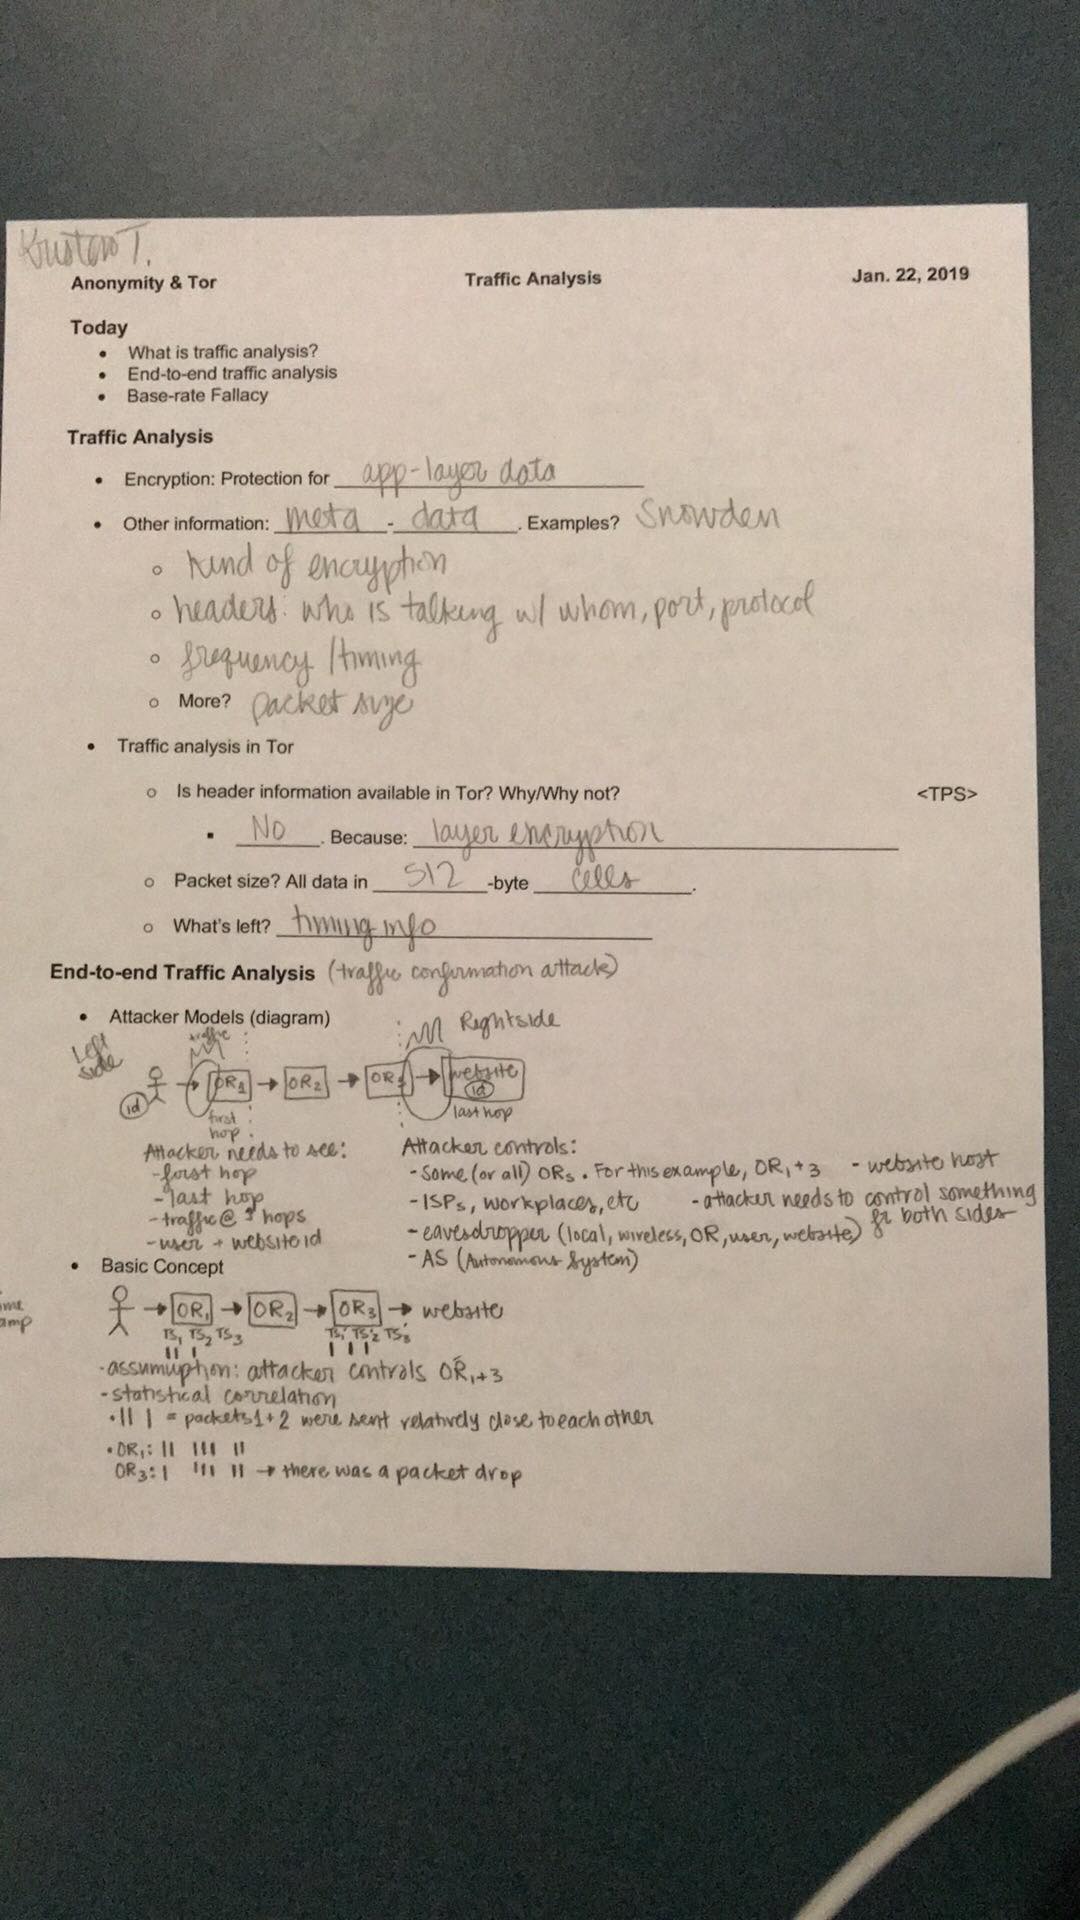 Kristen T.
Anonymity & Tor Traffic Analysis Jan. 22, 2019
Today
• What is traffic analysis?
• End-to-end traffic analysis
• Base-rate Fallacy
Traffic Analysis
• Encryption: Protection for app-layer data
• Other information: meta - data. Examples? Snowden
○ kind of encryption
○ headers: who is talking w/ whom, port, protocol
○ frequency / timing
○ More? packet size
• Traffic analysis in Tor
○ Is header information available in Tor? Why/Why not? <TPS>
▪ No. Because: layer encryption
○ Packet size? All data in 512-byte cells.
○ What's left? timing info
End-to-end Traffic Analysis (traffic confirmation attack)
• Attacker Models (diagram)
Left side traffic Rightside
id → OR1 → OR2 → OR3 → website id
first hop last hop
Attacker needs to see:
- first hop
- last hop
- traffic @ hops
- user + website id
Attacker controls:
- Some (or all) ORs. For this example, OR1+3 - website host
- ISPs, workplaces, etc - attacker needs to control something
fr both sides
- eavesdropper (local, wireless, OR, user, website)
- AS (Autonomous System)
• Basic Concept
→ OR1 → OR2 → OR3 → website
TS1 TS2 TS3 TS1' TS2' TS3'
- assumuption: attacker controls OR1+3
- statistical correlation
• || | = packets 1+2 were sent relatively close to each other
• OR1: || ||| ||
OR3: | ||| || → there was a packet drop